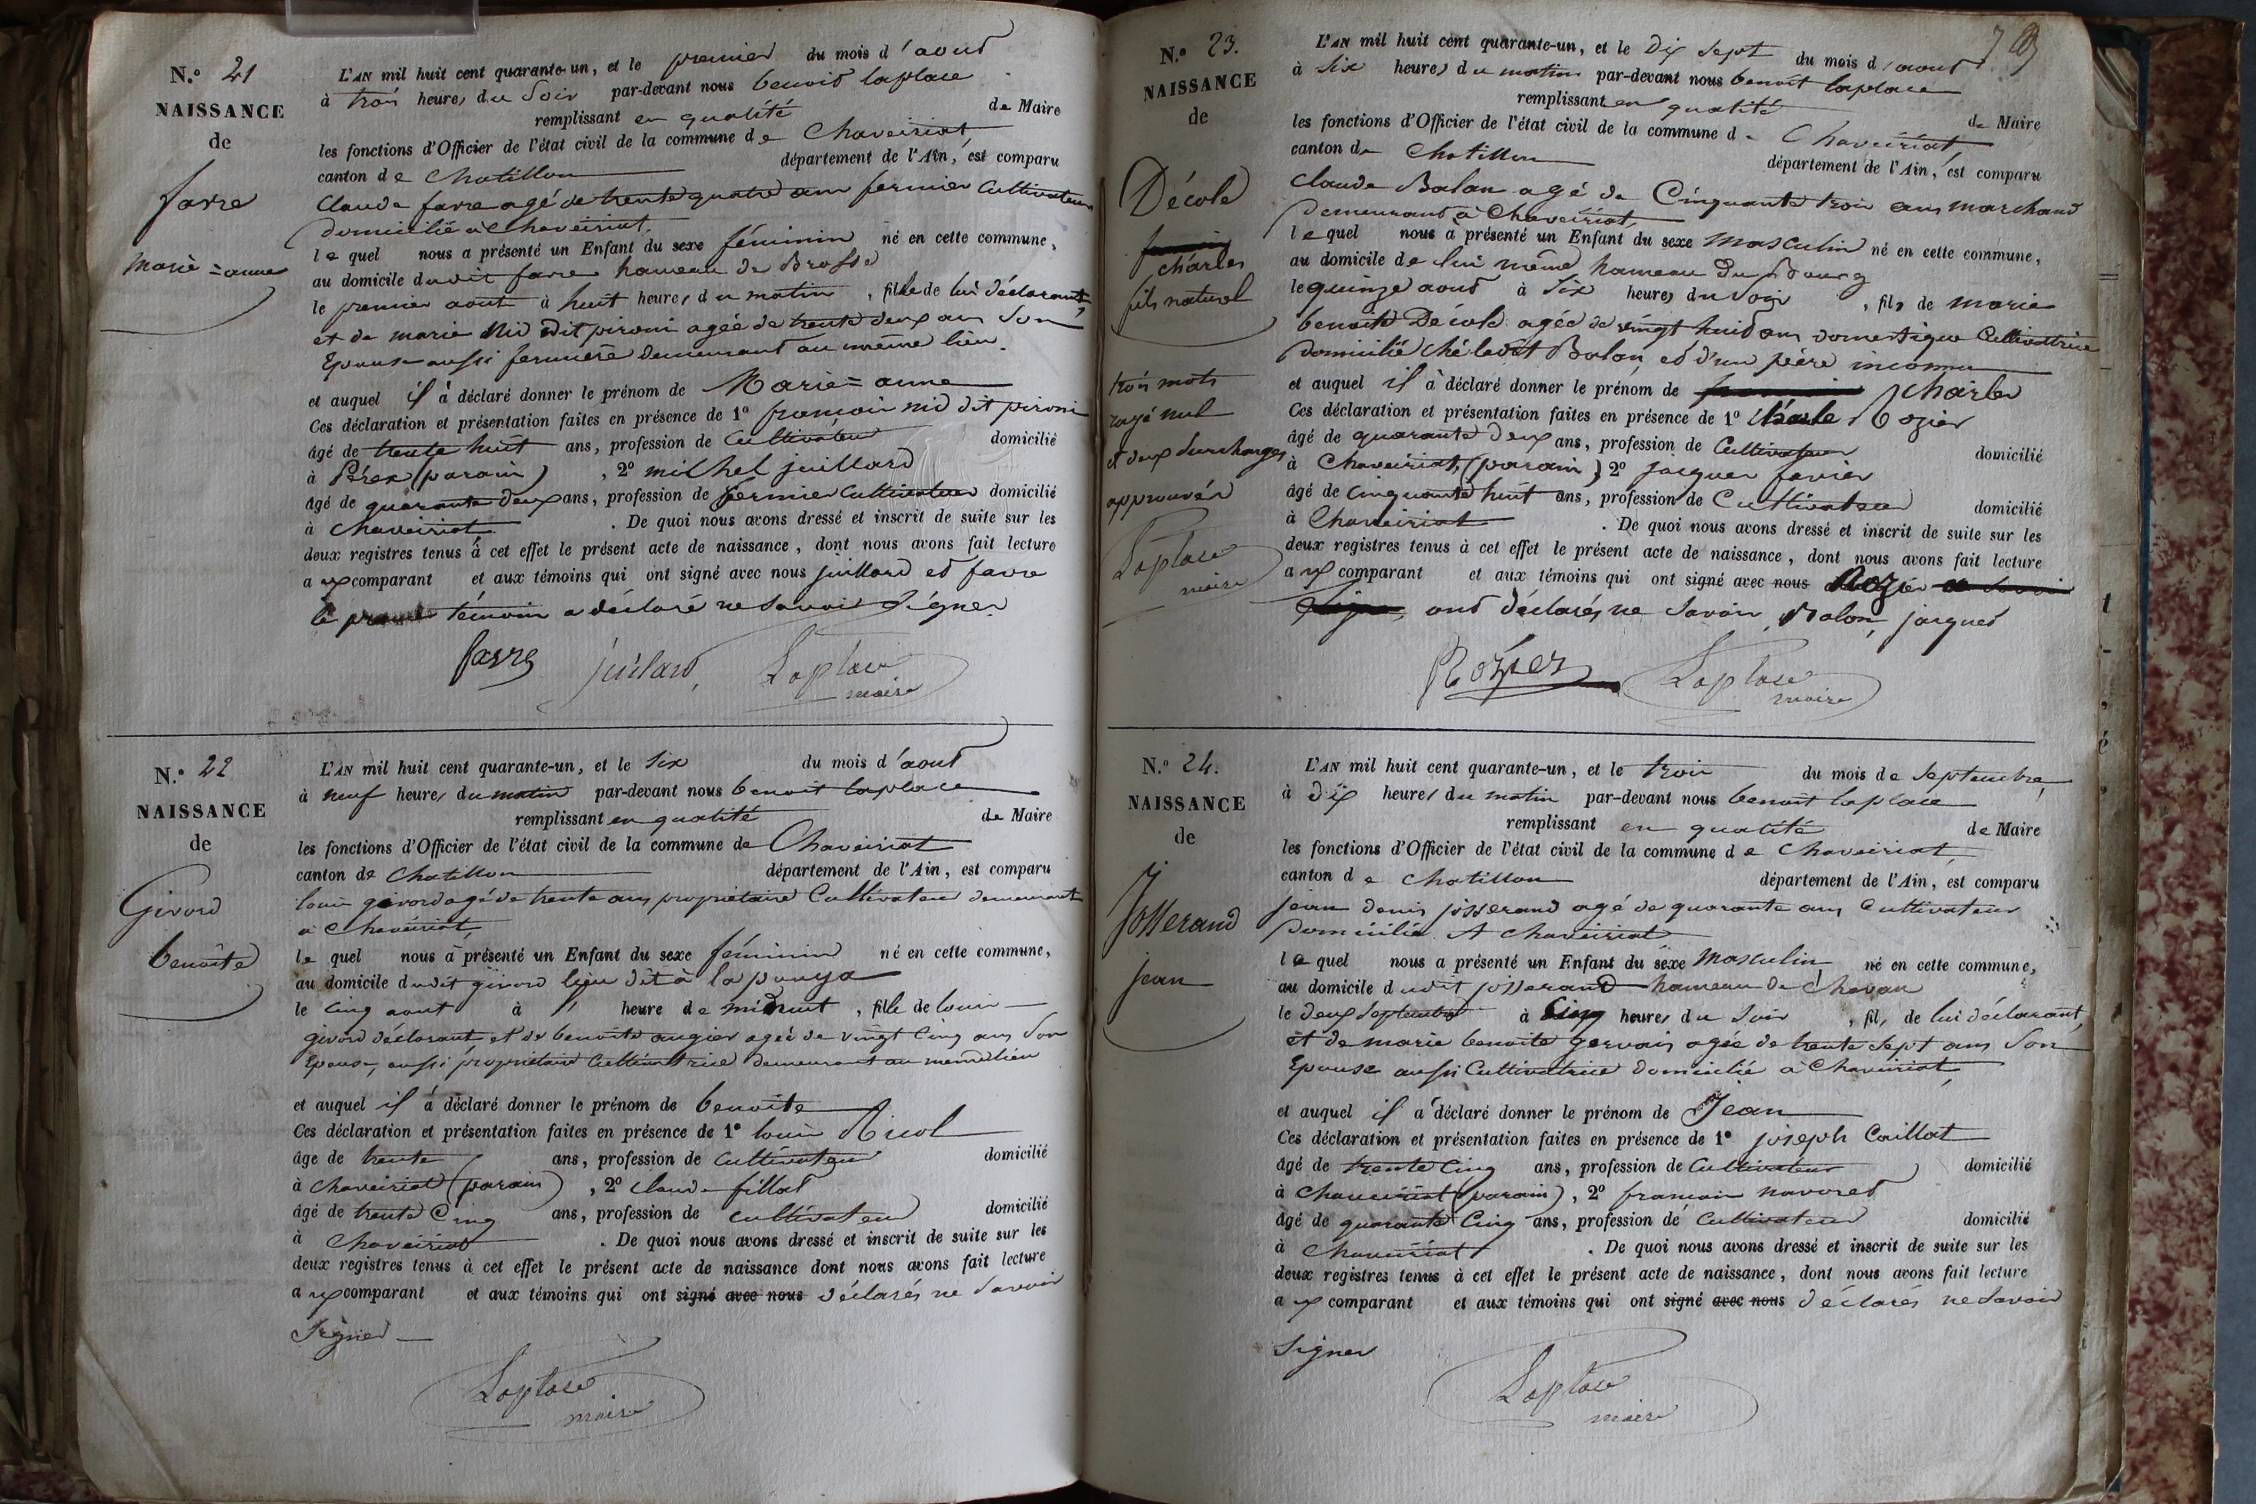 N.° 21
NAISSANCE
de
favre
marie=anne
L'AN mil huit cent quarante-un, et le premier du mois d'aout
à trois heures du Soir par-devant nous benoit laplace
remplissant en qualité de Maire
les fonctions d'Officier de l'état civil de la commune de Chaveiriat
canton de Chatillon département de l'Ain, est comparu
Claude favre agé de trente quatre ans fermier Cultivateur
domicilié à Chaveiriat,
lequel nous a présenté un Enfant du sexe féminin né en cette commune,
au domicile dudit favre hameau de Brosse
le premier aout à huit heures du matin, fille de lui déclarant,
et de marie Nid dit pironi agée de trente deux ans Son
Epouse aussi fermière demeurant au même lieu.
et auquel il a déclaré donner le prénom de Marie=anne
Ces déclaration et présentation faites en présence de 1° francois nid dit pironi
âgé de trente huit ans, profession de Cultivateur domicilié
à Pérex (parain), 2° milhel juillard
âgé de quarante deux ans, profession de fermier Cultivateur domicilié
à Chaveiriat. De quoi nous avons dressé et inscrit de suite sur les
deux registres tenus à cet effet le présent acte de naissance, dont nous avons fait lecture
aux comparant et aux témoins qui ont signé avec nous juillard et favre
le premier témoin a déclaré ne Savoir Signer
favre juilard, Laplace
maire
N.° 22
NAISSANCE
de
Givord
benoîte
L'AN mil huit cent quarante-un, et le Six du mois d'aout
à neuf heures du matin par-devant nous benoit laplace
remplissant en qualité de Maire
les fonctions d'Officier de l'état civil de la commune de Chaveiriat
canton de Chatillon département de l'Ain, est comparu
louis givord agé de trente ans propriétaire Cultivateur demeurant
à Chavéiriat,
lequel nous a présenté un Enfant du sexe féminin né en cette commune,
au domicile dudit givord lieu dit à la pouya
le Cinq aout à heure de minuit, fille de louis
givord déclarant et de benoite augier agée de vingt Cinq ans Son
Epouse, aussi propriétaire Cultivatrice demeurant au meme lieu
et auquel il a déclaré donner le prénom de benoîte
Ces déclaration et présentation faites en présence de 1° louis Ricol
âge de trente ans, profession de Cultivateur domicilié
à Chaveiriat (parain), 2° claude fillat
âgé de trente Cinq ans, profession de cultivateur domicilié
à Chaveiriat. De quoi nous avons dressé et inscrit de suite sur les
deux registres tenus à cet effet le présent acte de naissance dont nous avons fait lecture
aux comparant et aux témoins qui ont signé avec nous déclarés ne Savoir
Signer
Laplace
maire
N.° 23.
NAISSANCE
de
Décole
charles
fils naturel
trois mots
rayé nul
et deux Surcharges
approuvés
Laplace
maire
L'AN mil huit cent quarante-un, et le Dix Sept du mois d'aout
à Six heures du matin par-devant nous benoit laplace
remplissant en qualité de Maire
les fonctions d'Officier de l'état civil de la commune d. Chaveiriat
canton de Chatillon département de l'Ain, est comparu
Claude Balan agé de Cinquante trois ans marchand
Demeurant à Chaveiriat,
lequel nous a présenté un Enfant du sexe Masculin né en cette commune,
au domicile de lui même hameau Du Bourg
le quinze aout à Six heures du Soir, fils de marie
benoite Décole agée de vingt huit ans domestique Cultivatrice
Domicilié ché ledit Balan, et d'un père inconnu
et auquel il a déclaré donner le prénom de Charles
Ces déclaration et présentation faites en présence de 1° Charle Rozier
âgé de quarante deux ans, profession de Cultivateur domicilié
à Chaveiriat (parain) 2° jacques favier
âgé de Cinquante huit ans, profession de Cultivateur domicilié
à Chaveiriat. De quoi nous avons dressé et inscrit de suite sur les
deux registres tenus à cet effet le présent acte de naissance, dont nous avons fait lecture
aux comparant et aux témoins qui ont signé avec nous Rozier
ont déclarés ne Savoir, Balon, jacques
Rozier Laplace
maire
N.° 24.
NAISSANCE
de
Josserand
jean
L'AN mil huit cent quarante-un, et le trois du mois de Septembre,
à dix heures du matin par-devant nous benoit laplace
remplissant en qualité de Maire
les fonctions d'Officier de l'état civil de la commune de Chaveiriat,
canton de Chatillon département de l'Ain, est comparu
jean denis josserand agé de quarante ans Cultivateur
Domicilié A Chaveiriat
lequel nous a présenté un Enfant du sexe Masculin, né en cette commune,
au domicile dudit josserand hameau de Chavan
le deux Septembre à Cinq heures du Soir, fils de lui déclarant,
et de marie benoite gervais agée de trente Sept ans Son
Epouse aussi Cultivatrice domicilié à Chaveiriat,
et auquel il a déclaré donner le prénom de Jean
Ces déclaration et présentation faites en présence de 1° joseph Caillat
âgé de trente Cinq ans, profession de Cultivateur domicilié
à Chaveiriat (parain), 2° francois navoret
âgé de quarante Cinq ans, profession de Cultivateur domicilié
à Chaveiriat. De quoi nous avons dressé et inscrit de suite sur les
deux registres tenus à cet effet le présent acte de naissance, dont nous avons fait lecture
aux comparant et aux témoins qui ont signé avec nous déclarés ne Savoir
Signer
Laplace
maire